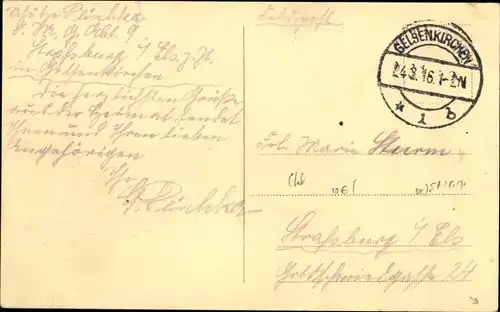 Schütze
Abt. 9
Strassburg i/Els. z. Zt.
in Gelsenkirchen
Die herzlichsten Grüße
aus der Heimat sendet
Ihnen und Ihren lieben
Angehörigen
Ihr
Feldpost
GELSENKIRCHEN
24.3.16. 1-2N
* 1 b
Frl. Marie Sturm
10€
Strassburg i/Els
Goldschmiedgasse 24